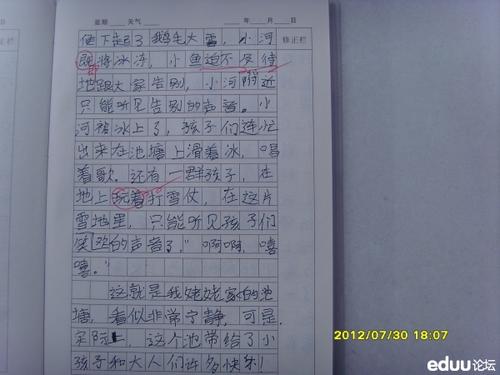 星期 天气 年 月 日
修正栏
便下起了鹅毛大雪，小河
即将冰冻，小鱼迫不及待
地跟大家告别，小河附近
只能听见告别的声音。小
河被冰上了，孩子们连忙
出来在池塘上滑着冰，唱
着歌。还有一群孩子，在
地上玩着打雪仗，在这片
雪地里，只能听见孩子们
笑 的声音了，"啊啊，嘻
嘻。"
这就是我姥姥家的池
塘，看似非常宁静，可是，
实际上，这个池带给了小
孩子和大人们许多快乐！
2012/07/30 18:07
eduu论坛